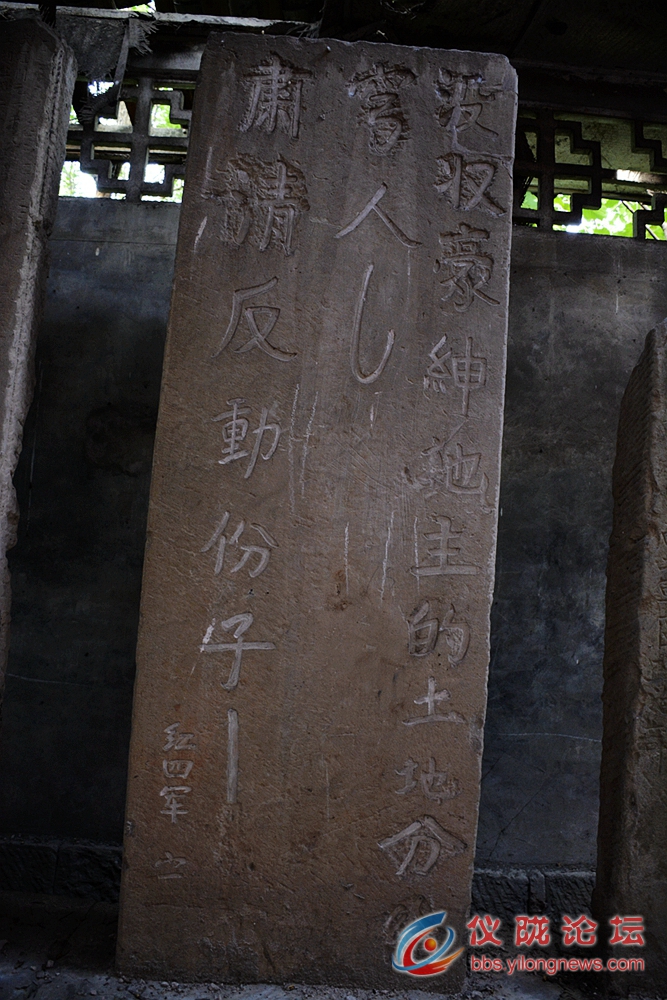 没收豪紳地主的土地分
人！
肅清反動份子！
红四军
仪陇论坛
bbs.yilongnews.com